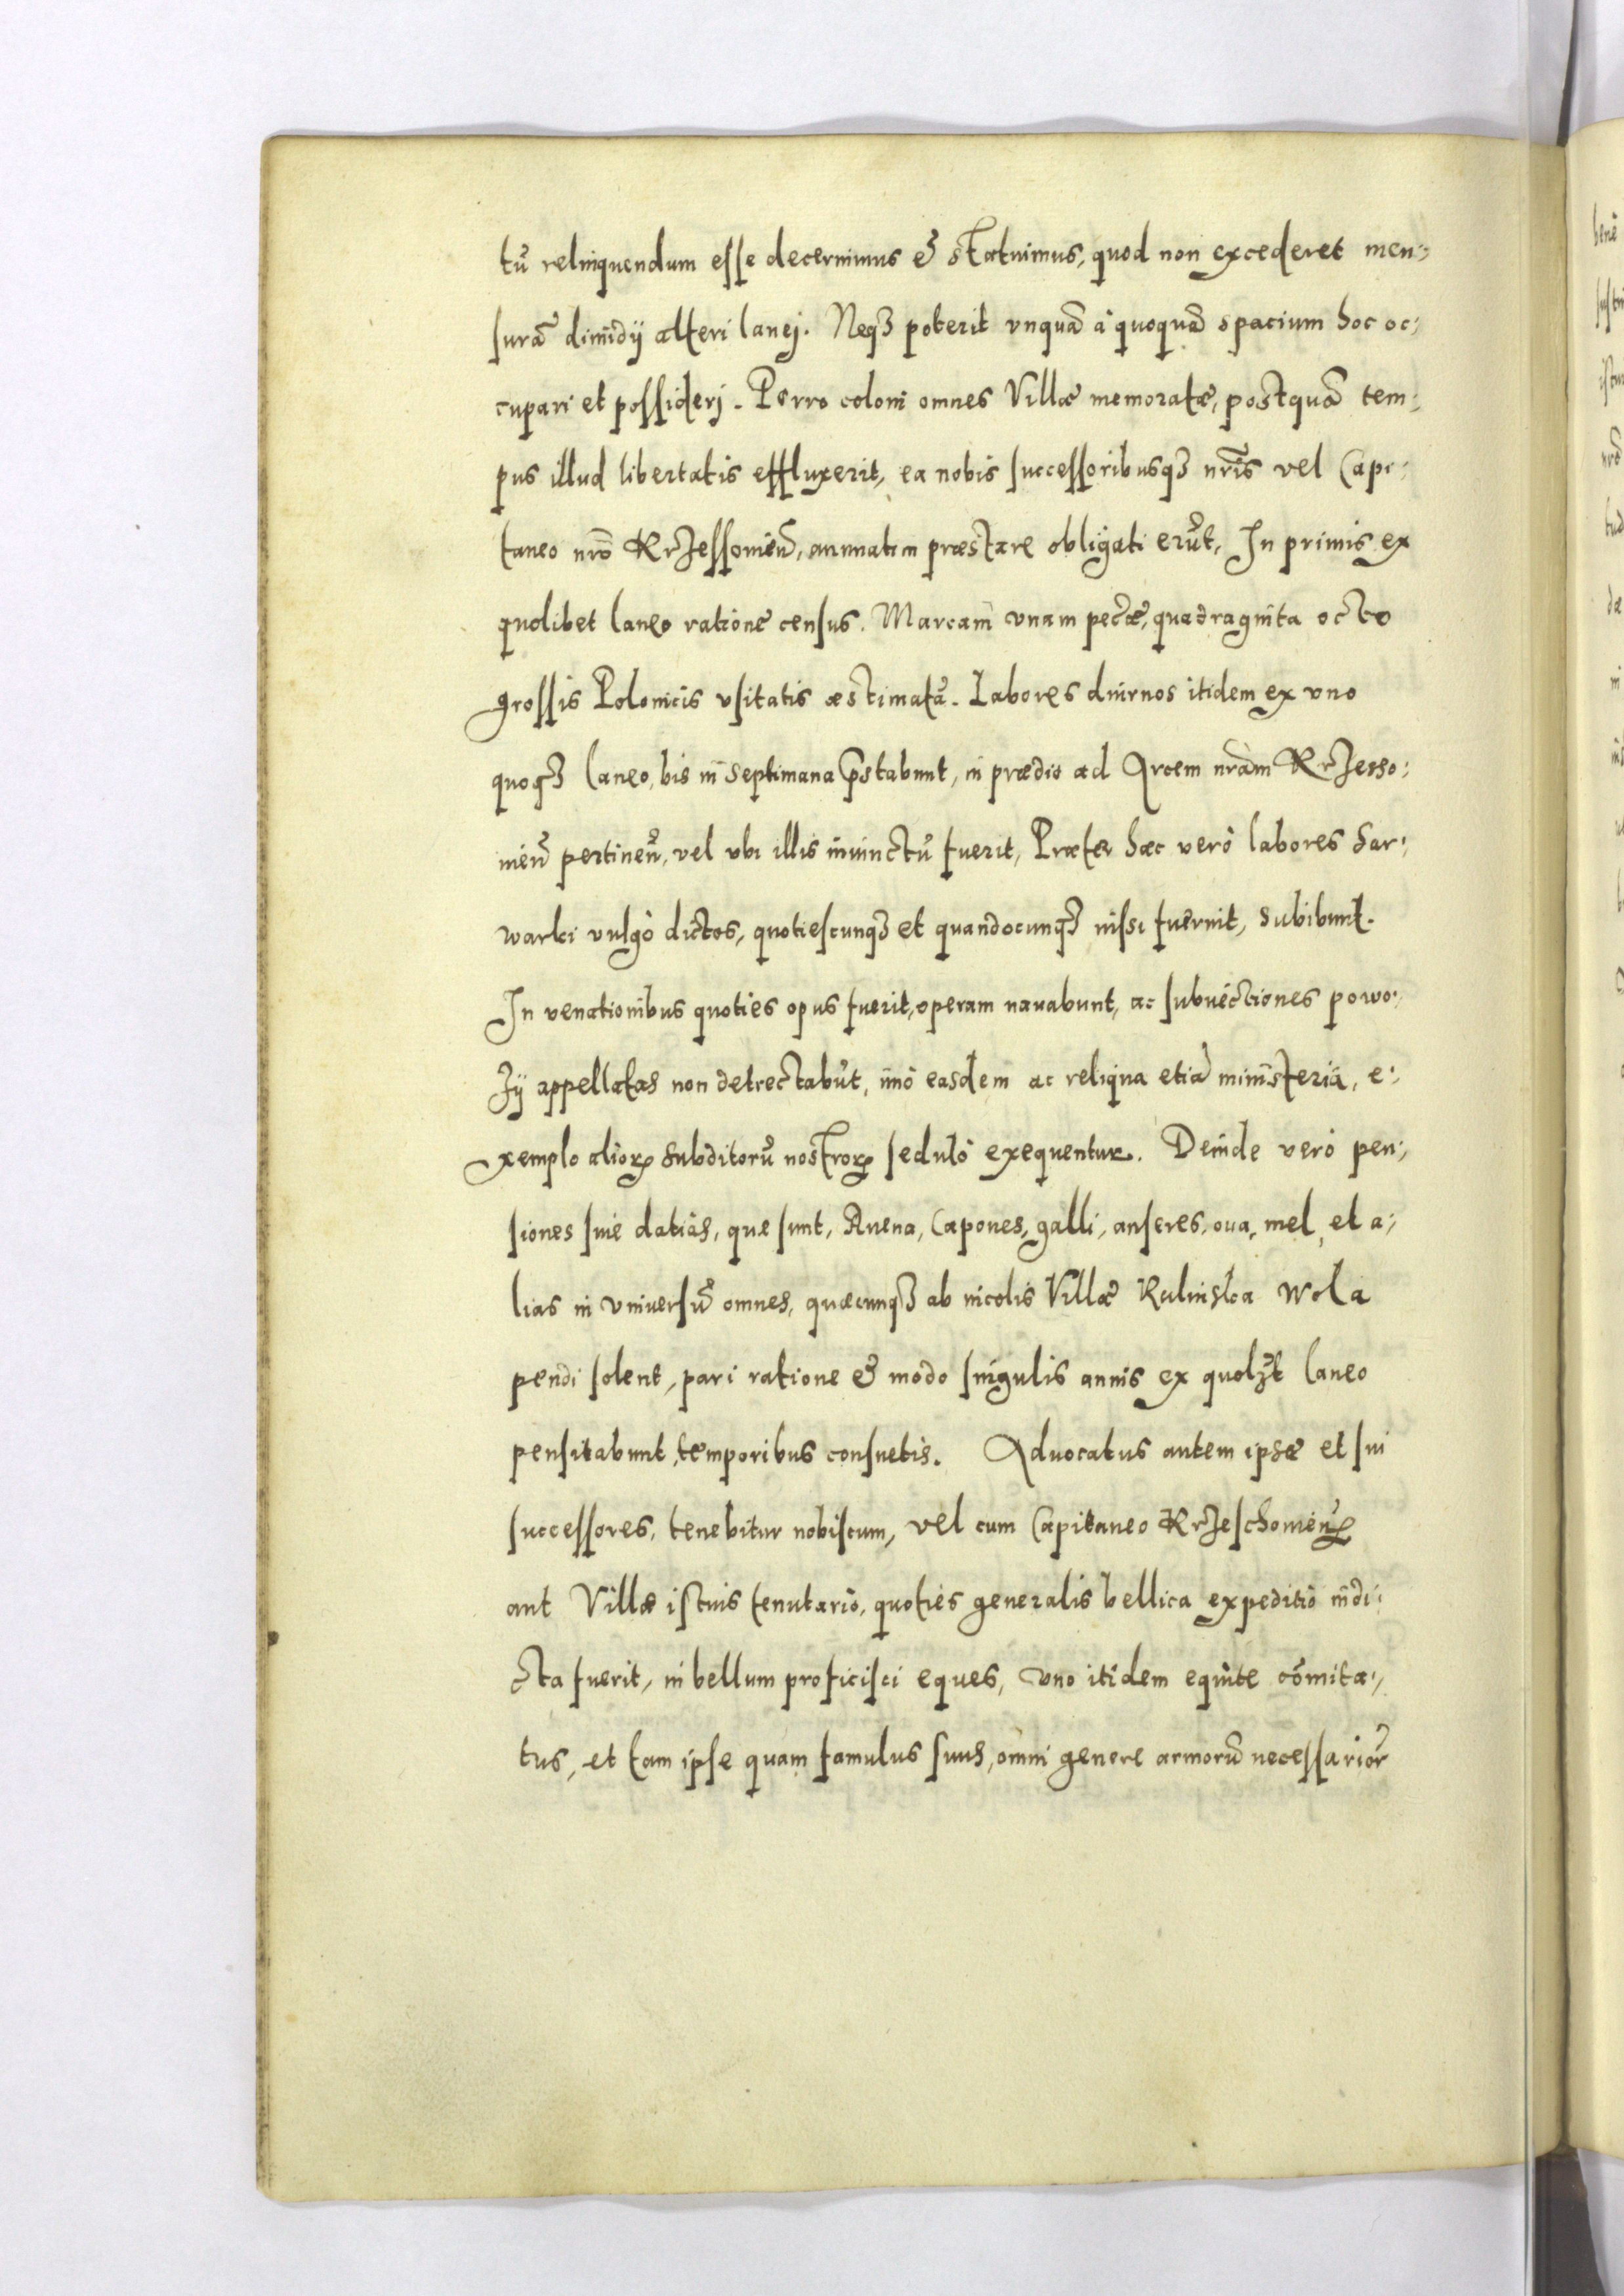 tũ relinquendum esse decernimus & statuimus, quod non excederet men:
surã dimidij alteri lanej. Neqꝫ poterit vnquã à quoquã spacium hoc oc:
cupari et possiderj. Porro coloni omnes Villæ memoratæ, postquã tem:
pus illud libertatis effluxerit, ea nobis successoribusqꝫ nr̃is vel Capi:
taneo nrõ Krzessouieñ, annuatim præstare obligati erũt, In primis ex
quolibet laneo ratione census. Marcam vnam pecæ, quadraginta octo
grossis Polonicis vsitatis æstimatã. Labores diurnos itidem ex vno
quoqꝫ laneo, bis in Septimana p̃stabunt, in prædio ad Arcem nrãm Krzesho:
uieñ pertineñ, vel vbi illis iniunctũ fuerit, Præter hæc verò labores Sar:
warki vulgò dictos, quotiescunqꝫ et quandocunqꝫ iussi fuerint, subibunt.
In venationibus quoties opus fuerit, operam nauabunt, ac subuectiones powo:
zÿ appellatas non detrectabũt, imò easdem ac reliqua etiã ministeria, e:
xemplo alioꝝ Subditorũ nostroꝝ sedulò exequentur. Deinde verò pen:
siones siue datias, quæ sunt, Auena, Capones, galli, anseres, oua, mel, et a:
lias in vniuersũ omnes, quæcunqꝫ ab incolis Villæ Kulinska Wola
pendi solent, pari ratione & modo singulis annis ex quolꝫt laneo
pensitabunt, temporibus consuetis. Aduocatus autem ipse et sui
successores, tenebitur nobiscum, vel cum Capitaneo Krzeschouieñ,
aut Villæ istius tenutario, quoties generalis bellica expeditio indi:
cta fuerit, in bellum proficisci eques, vno itidem equite cõmita:
tus, et tam ipse quam famulus suus, omni genere armorũ necessarior̃